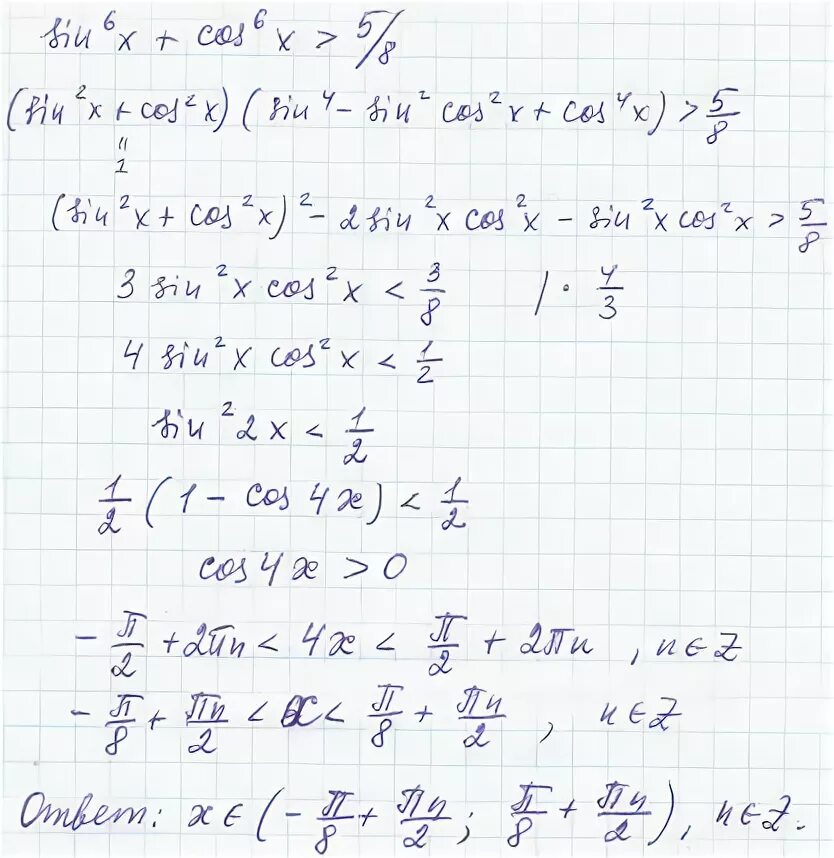 sin⁶x + cos⁶x > 5/8
(sin²x + cos²x)(sin⁴ - sin² cos²x + cos⁴x) > 5/8
"
1
(sin²x + cos²x)² - 2sin²x cos²x - sin²x cos²x > 5/8
3 sin²x cos²x < 3/8 | · 4/3
4 sin²x cos²x < 1/2
sin²2x < 1/2
1/2 (1 - cos 4x) < 1/2
cos 4x > 0
- π/2 + 2πn < 4x < π/2 + 2πn , n ∈ Z
- π/8 + πn/2 < x < π/8 + πn/2 , n ∈ Z
Ответ: x ∈ (- π/8 + πn/2 ; π/8 + πn/2), n ∈ Z.